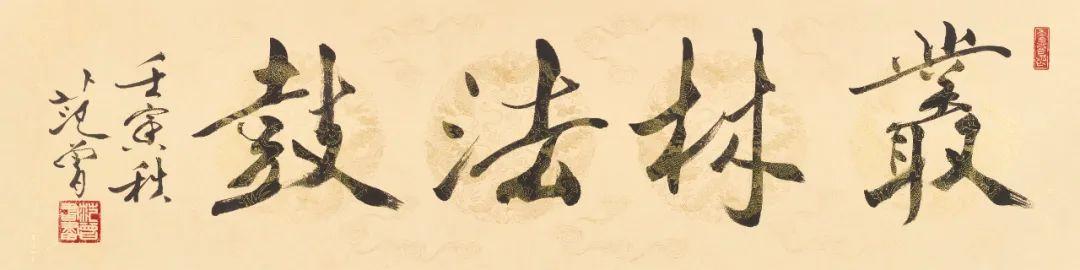 叢林法鼓
壬寅秋
十翼范曾